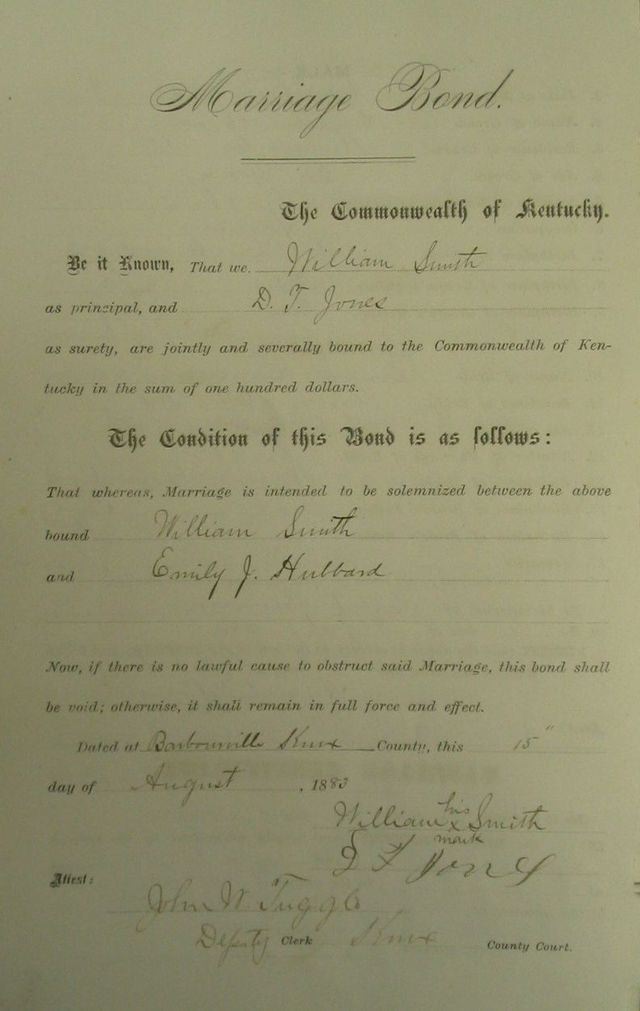 Marriage Bond.
The Commonwealth of Kentucky.
Be it Known, That we William Smith
as principal, and D. T. Jones
as surety, are jointly and severally bound to the Commonwealth of Ken-
tucky in the sum of one hundred dollars.
The Condition of this Bond is as follows:
That whereas, Marriage is intended to be solemnized between the above
bound William Smith
and Emily J. Hubbard
Now, if there is no lawful cause to obstruct said Marriage, this bond shall
be void; otherwise, it shall remain in full force and effect.
Dated at Barbourville Knox County, this 15"
day of August, 1883
his
William x Smith
mark
Jones
Attest:
John W. Tuggle
Deputy Clerk Knox County Court.